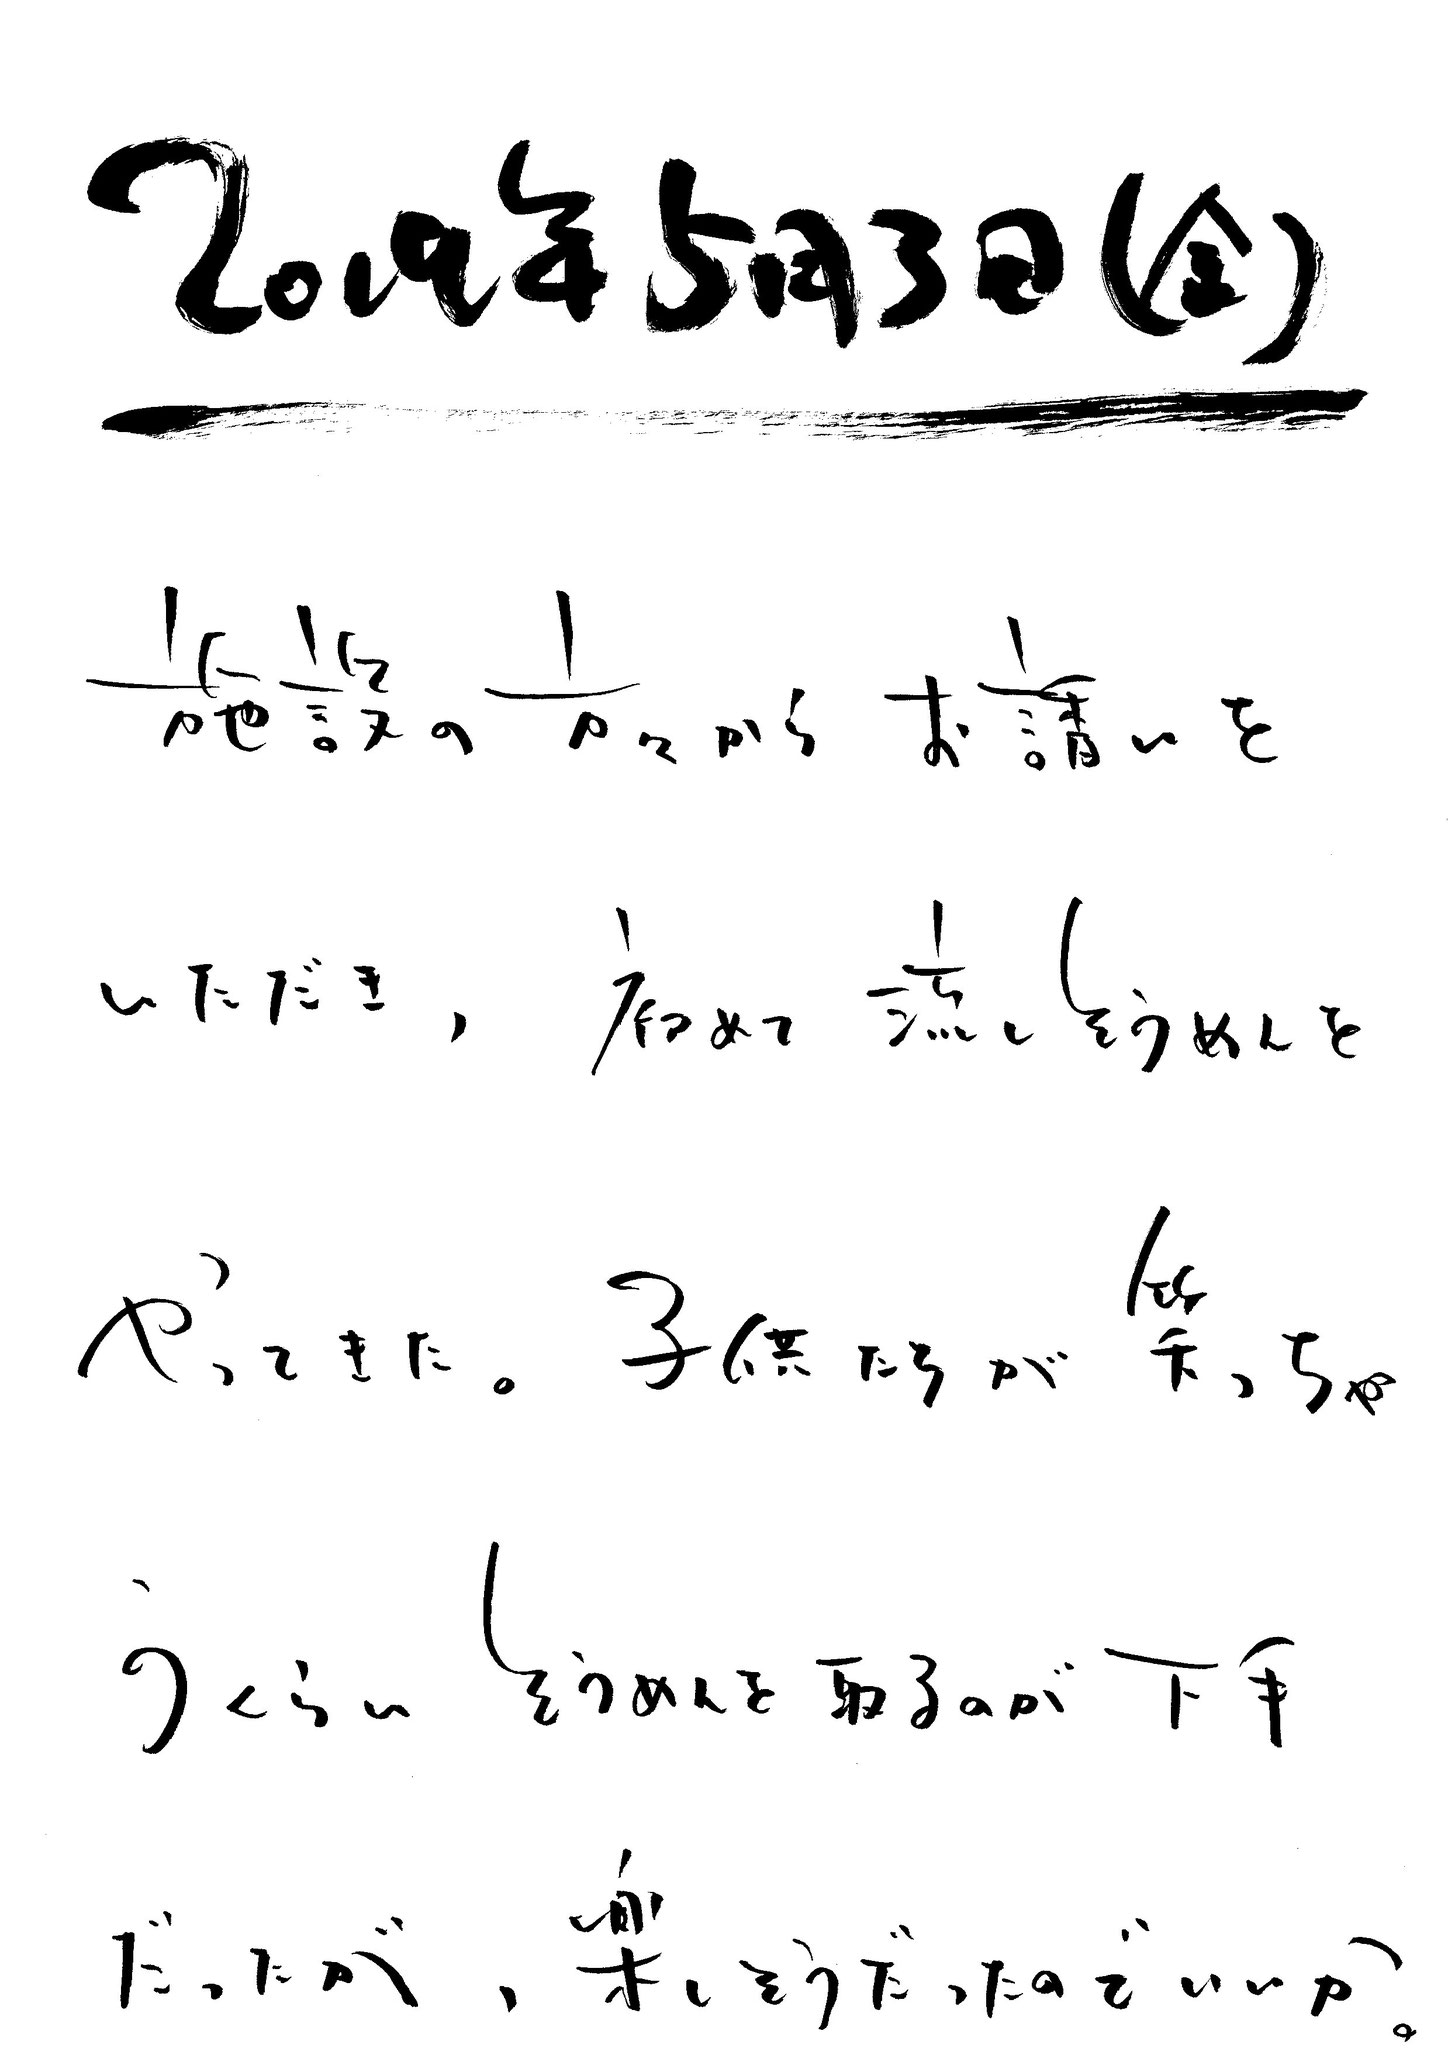 2019年5月3日(金)
施設の方々からお請いを
いただき、初めて流しそうめんを
やってきた。子供たちが笑っちゃ
うくらいそうめんを取るのが下手
だったが、楽しそうだったのでいいか。